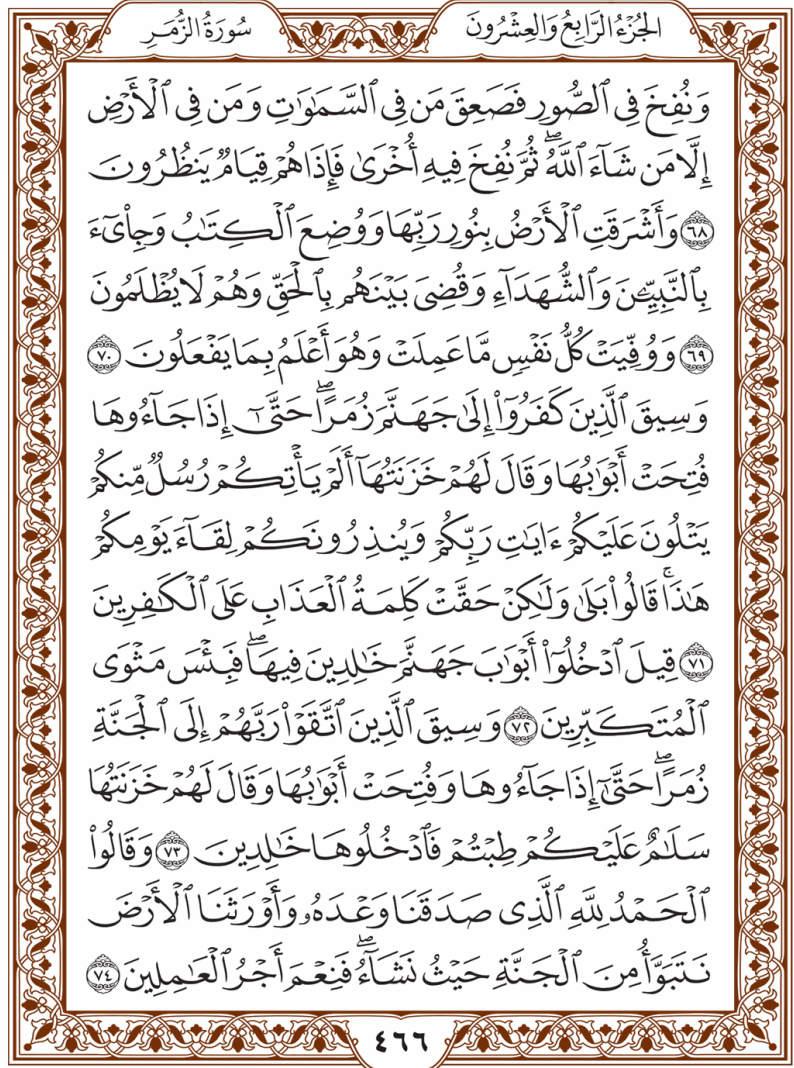 الجُزْءُ الرَّابِعُ وَالعِشْرُونَ
سُورَةُ الزُّمَرِ
وَنُفِخَ فِي ٱلصُّورِ فَصَعِقَ مَن فِي ٱلسَّمَٰوَٰتِ وَمَن فِي ٱلْأَرْضِ
إِلَّا مَن شَآءَ ٱللَّهُۖ ثُمَّ نُفِخَ فِيهِ أُخْرَىٰ فَإِذَا هُمْ قِيَامٌ يَنظُرُونَ
٦٨ وَأَشْرَقَتِ ٱلْأَرْضُ بِنُورِ رَبِّهَا وَوُضِعَ ٱلْكِتَٰبُ وَجِا۟يٓءَ
بِٱلنَّبِيِّـۧنَ وَٱلشُّهَدَآءِ وَقُضِيَ بَيْنَهُم بِٱلْحَقِّ وَهُمْ لَا يُظْلَمُونَ
٦٩ وَوُفِّيَتْ كُلُّ نَفْسٍ مَّا عَمِلَتْ وَهُوَ أَعْلَمُ بِمَا يَفْعَلُونَ ٧٠
وَسِيقَ ٱلَّذِينَ كَفَرُوٓا۟ إِلَىٰ جَهَنَّمَ زُمَرًاۖ حَتَّىٰٓ إِذَا جَآءُوهَا
فُتِحَتْ أَبْوَٰبُهَا وَقَالَ لَهُمْ خَزَنَتُهَآ أَلَمْ يَأْتِكُمْ رُسُلٌ مِّنكُمْ
يَتْلُونَ عَلَيْكُمْ ءَايَٰتِ رَبِّكُمْ وَيُنذِرُونَكُمْ لِقَآءَ يَوْمِكُمْ
هَٰذَاۚ قَالُوا۟ بَلَىٰ وَلَٰكِنْ حَقَّتْ كَلِمَةُ ٱلْعَذَابِ عَلَى ٱلْكَٰفِرِينَ
٧١ قِيلَ ٱدْخُلُوٓا۟ أَبْوَٰبَ جَهَنَّمَ خَٰلِدِينَ فِيهَاۖ فَبِئْسَ مَثْوَى
ٱلْمُتَكَبِّرِينَ ٧٢ وَسِيقَ ٱلَّذِينَ ٱتَّقَوْا۟ رَبَّهُمْ إِلَى ٱلْجَنَّةِ
زُمَرًاۖ حَتَّىٰٓ إِذَا جَآءُوهَا وَفُتِحَتْ أَبْوَٰبُهَا وَقَالَ لَهُمْ خَزَنَتُهَا
سَلَٰمٌ عَلَيْكُمْ طِبْتُمْ فَٱدْخُلُوهَا خَٰلِدِينَ ٧٣ وَقَالُوا۟
ٱلْحَمْدُ لِلَّهِ ٱلَّذِي صَدَقَنَا وَعْدَهُۥ وَأَوْرَثَنَا ٱلْأَرْضَ
نَتَبَوَّأُ مِنَ ٱلْجَنَّةِ حَيْثُ نَشَآءُۖ فَنِعْمَ أَجْرُ ٱلْعَٰمِلِينَ ٧٤
٤٦٦